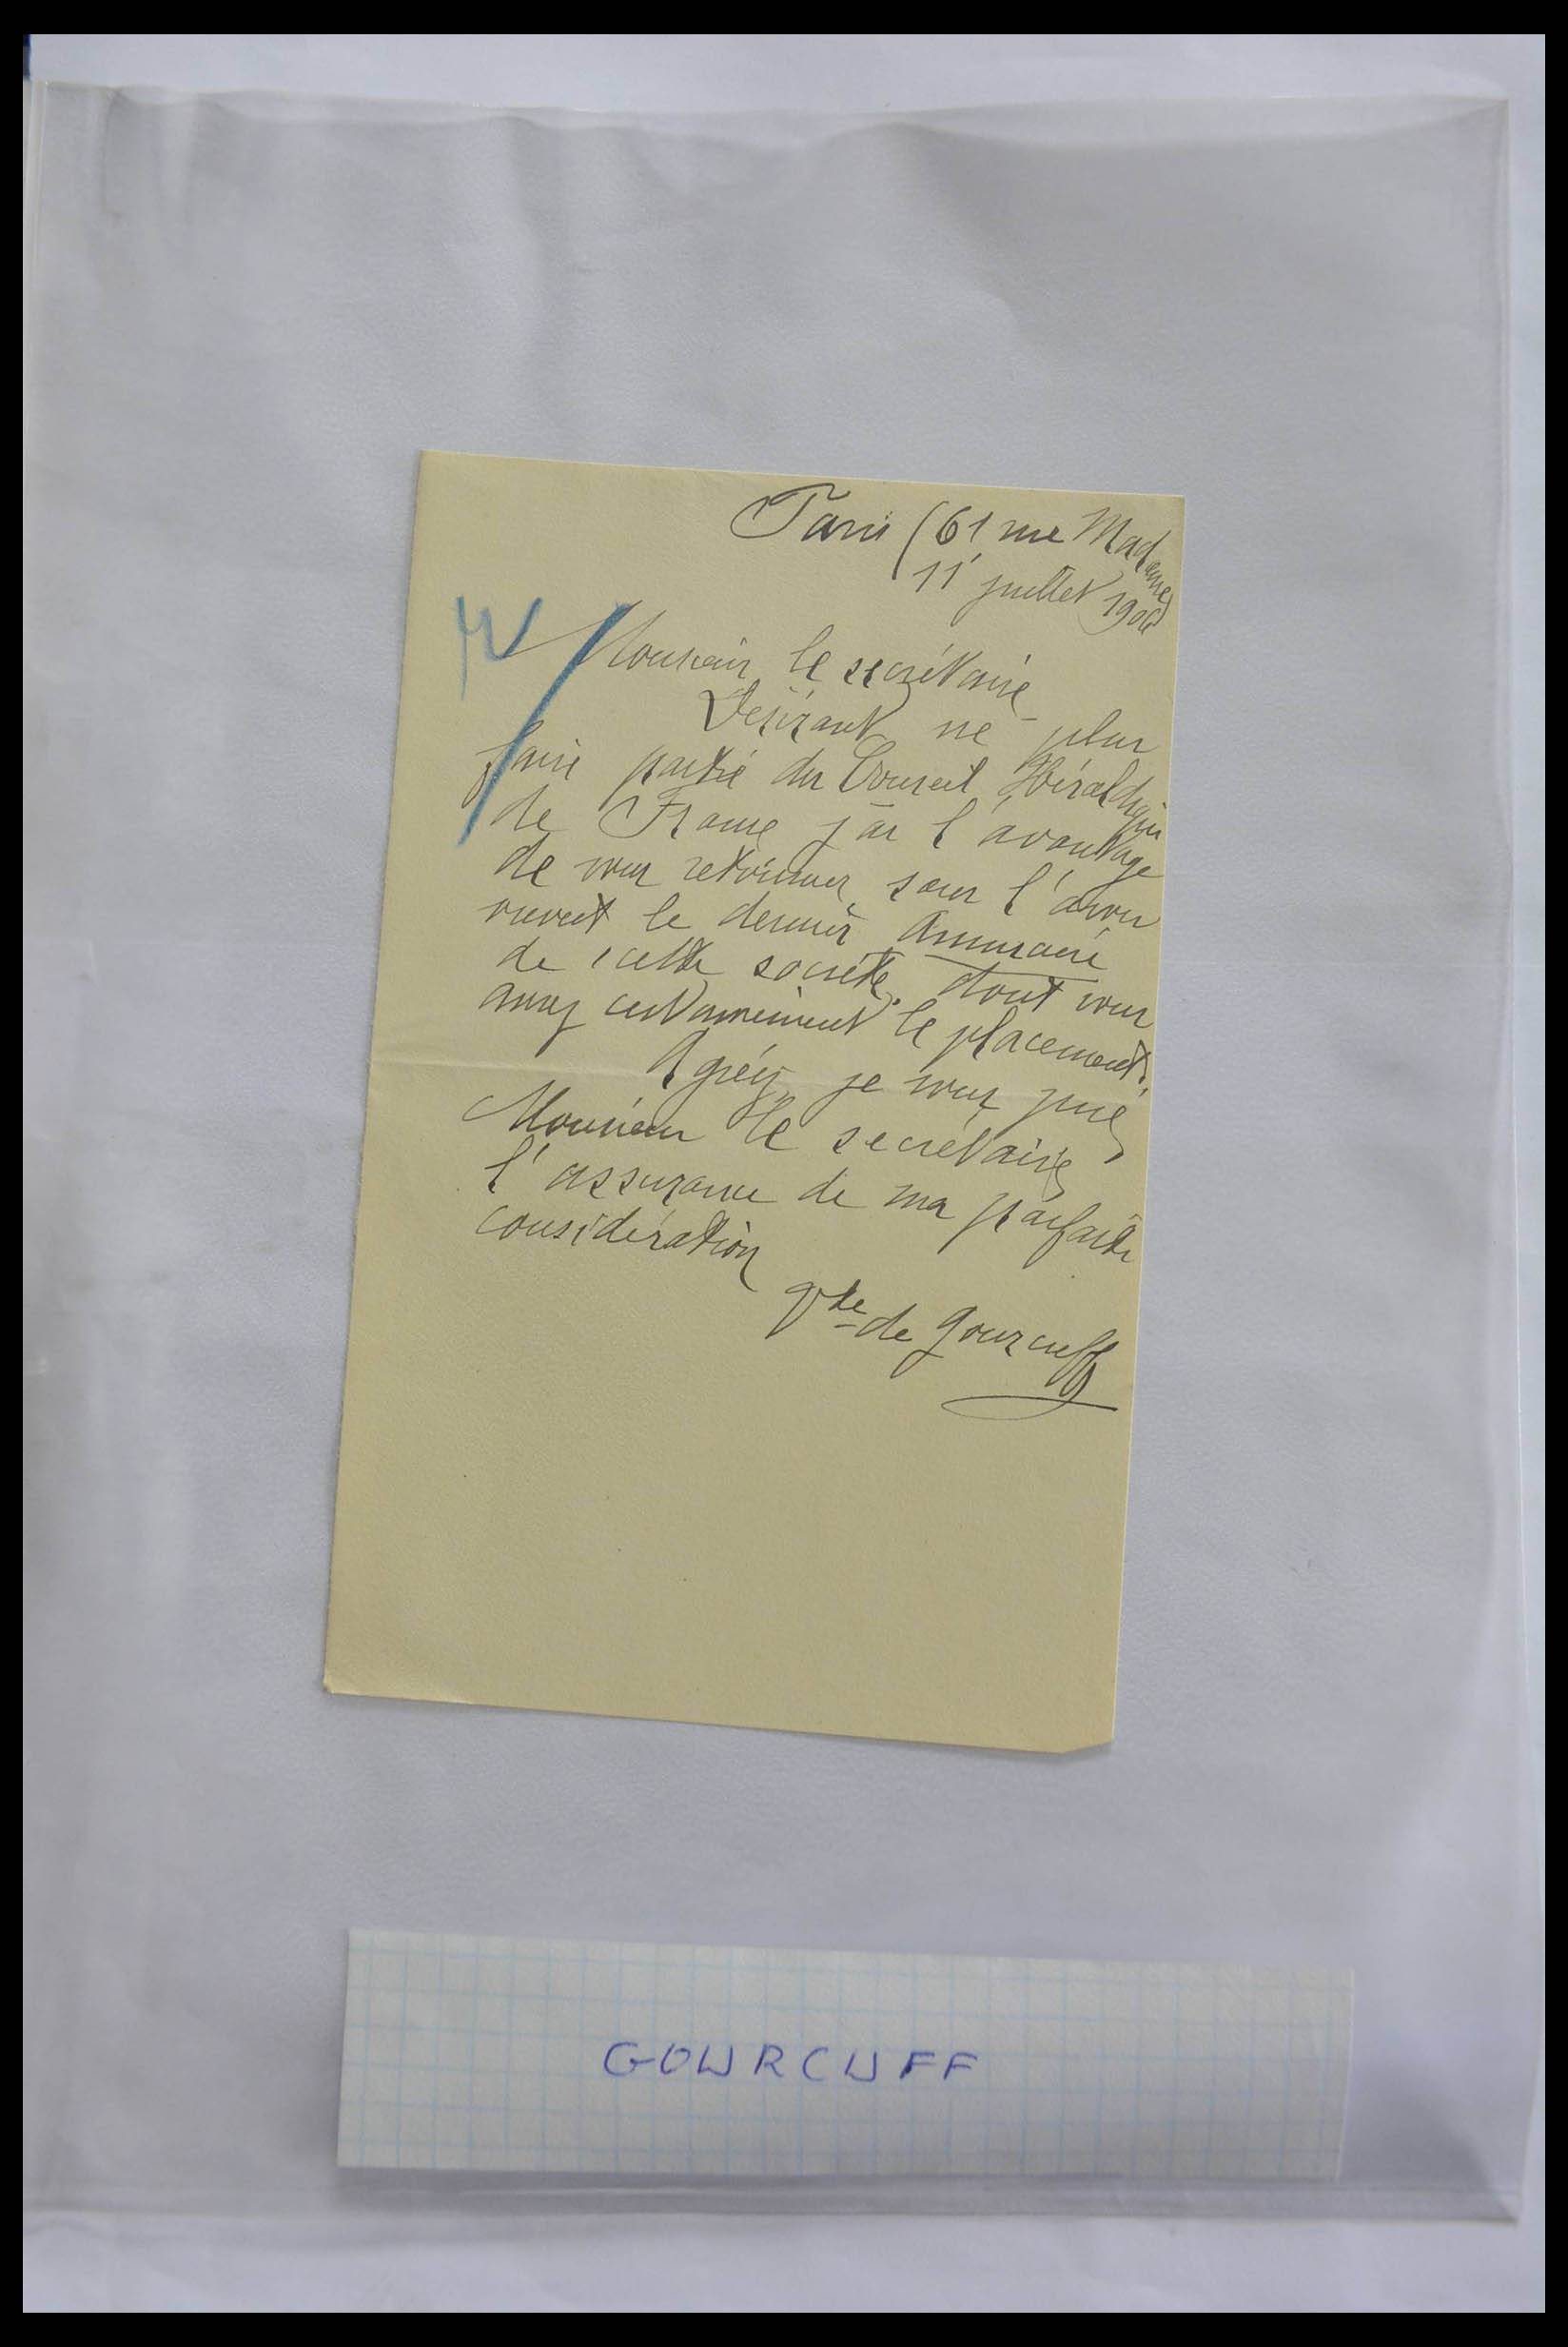 Paris (61 rue Madame)
11 juillet 1906
Monsieur le secrétaire
Désirant ne plus
faire partie du Conseil Héraldique
de France j'ai l'avantage
de vous retourner, sans l'avoir
ouvert le dernier Annuaire
de cette société, dont vous
aurez certainement le placement.
Agréez, je vous prie,
Monsieur le secrétaire
l'assurance de ma parfaite
considération
de Gourcuff
GOURCUFF